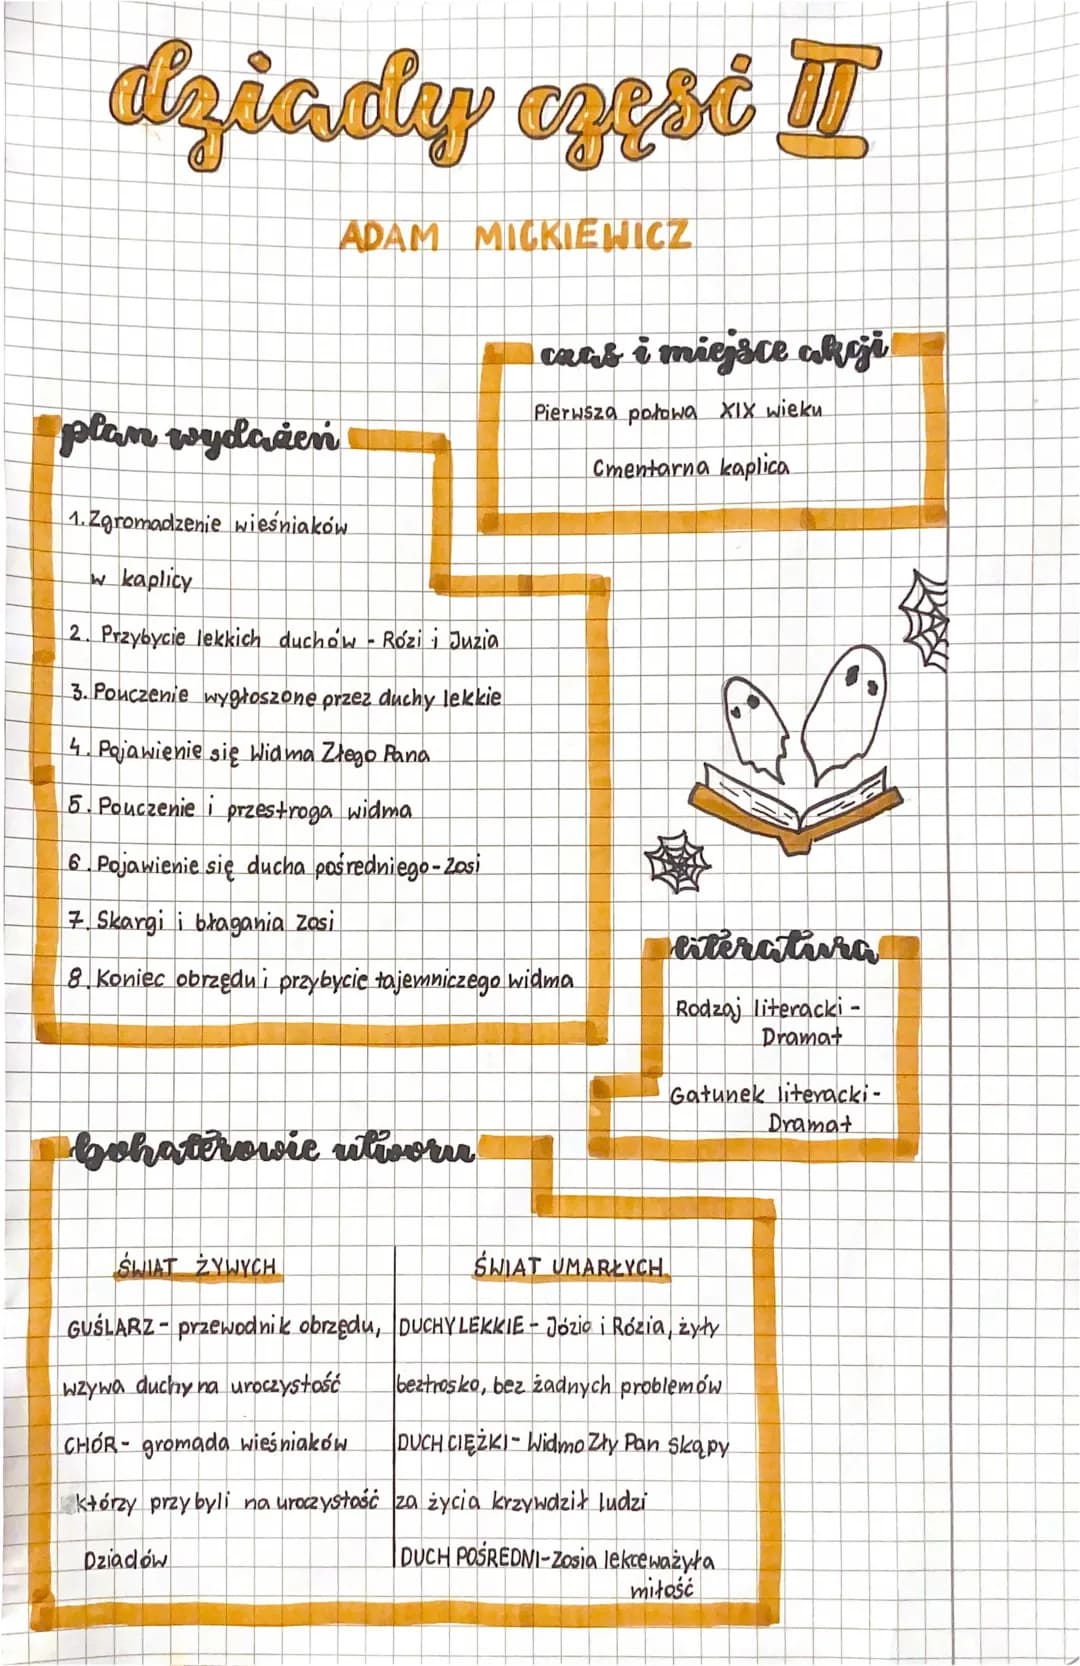 dziady część II
ADAM MICKIEWICZ
czas i miejsce akcji
Pierwsza połowa XIX wieku
Cmentarna kaplica
plan wydażeń
1. Zgromadzenie wieśniaków
w kaplicy
2. Przybycie lekkich duchów - Rózi i Juzia
3. Pouczenie wygłoszone przez duchy lekkie
4. Pojawienie się Widma Złego Pana
5. Pouczenie i przestroga widma
6. Pojawienie się ducha pośredniego - Zosi
7. Skargi i błagania Zosi
8. Koniec obrzędu i przybycie tajemniczego widma
literatura
Rodzaj literacki -
Dramat
Gatunek literacki -
Dramat
bohaterowie utworu
ŚWIAT ŻYWYCH
GUŚLARZ - przewodnik obrzędu,
wzywa duchy na uroczystość
CHÓR - gromada wieśniaków
którzy przybyli na uroczystość
Dziadów
ŚWIAT UMARŁYCH
DUCHY LEKKIE - Józio i Rózia, żyły
beztrosko, bez żadnych problemów
DUCH CIĘŻKI - Widmo Zły Pan skąpy
za życia krzywdził ludzi
DUCH POŚREDNI - Zosia lekceważyła
miłość